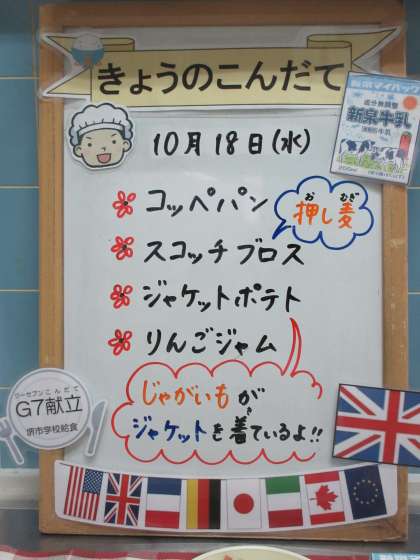 きょうのこんだて
10月18日(水)
コッペパン
押し麦
お むぎ
スコッチブロス
ジャケットポテト
りんごジャム
じゃがいもが
ジャケットを着ているよ!!
き
新泉牛乳
200ml
ジーセブンこんだて
G7献立
堺市学校給食